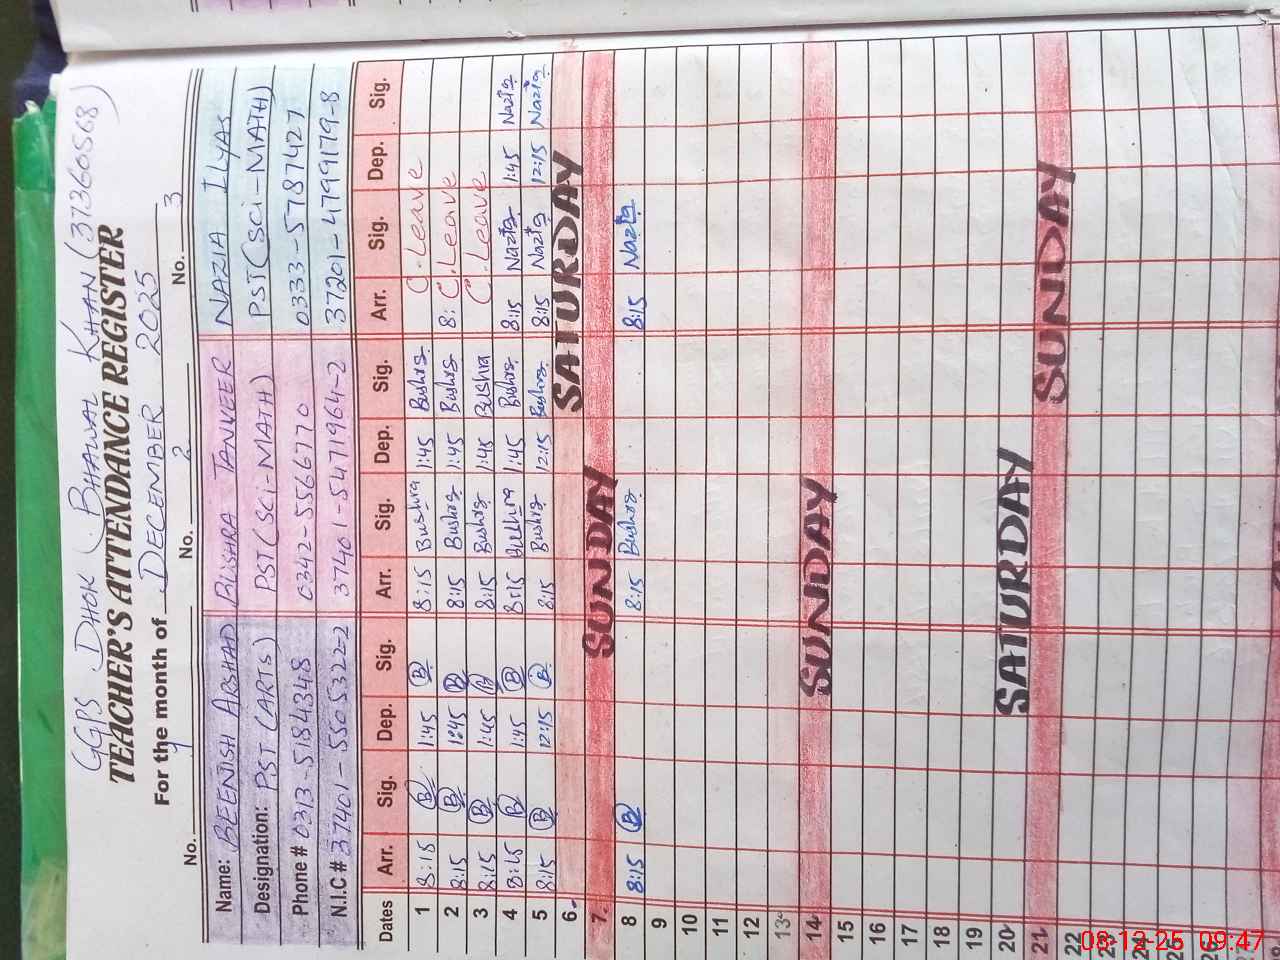 GGPS DHOK (BHAWAL KHAN (37360568)
TEACHER'S ATTENDANCE REGISTER
For the month of DECEMBER 2025
No. 1 No. 2 No. 3
Name: BEENISH ARSHAD BUSHRA TANVEER NAZIA ILYAS
Designation: PST (ARTS) PST (SCI-MATH) PST (SCI-MATH)
Phone # 0313-5184348 0342-5566770 0333-5787427
N.I.C # 37401-5505322-2 37401-5471964-2 37201-4799179-8
Dates Arr. Sig. Dep. Sig. Arr. Sig. Dep. Sig. Arr. Sig. Dep. Sig.
1 8:15 B 1:45 B 8:15 Bushra 1:45 Bushra C.Leave
2 8:15 B 1:45 B 8:15 Bushra 1:45 Bushra 8: C.Leave
3 8:15 B 1:45 B 8:15 Bushra 1:45 Bushra C.Leave
4 8:15 B 1:45 B 8:15 Bushra 1:45 Bushra 8:15 Nazia 1:45 Nazia
5 8:15 B 12:15 B 8:15 Bushra 12:15 Bushra 8:15 Nazia 12:15 Nazia
6 SATURDAY
7 SUNDAY
8 8:15 B 8:15 Bushra 8:15 Nazia
9
10
11
12
13
14 SUNDAY
15
16
17
18
19
20 SATURDAY
21 SUNDAY
22
23
24
25
26
27
08-12-25 09:47